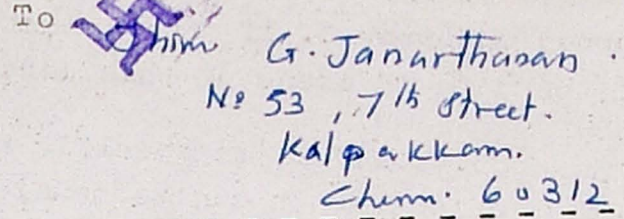 To Shim G. Janarthanan.
No 53, 7th Street.
Kalpakkam.
Chenn. 60312